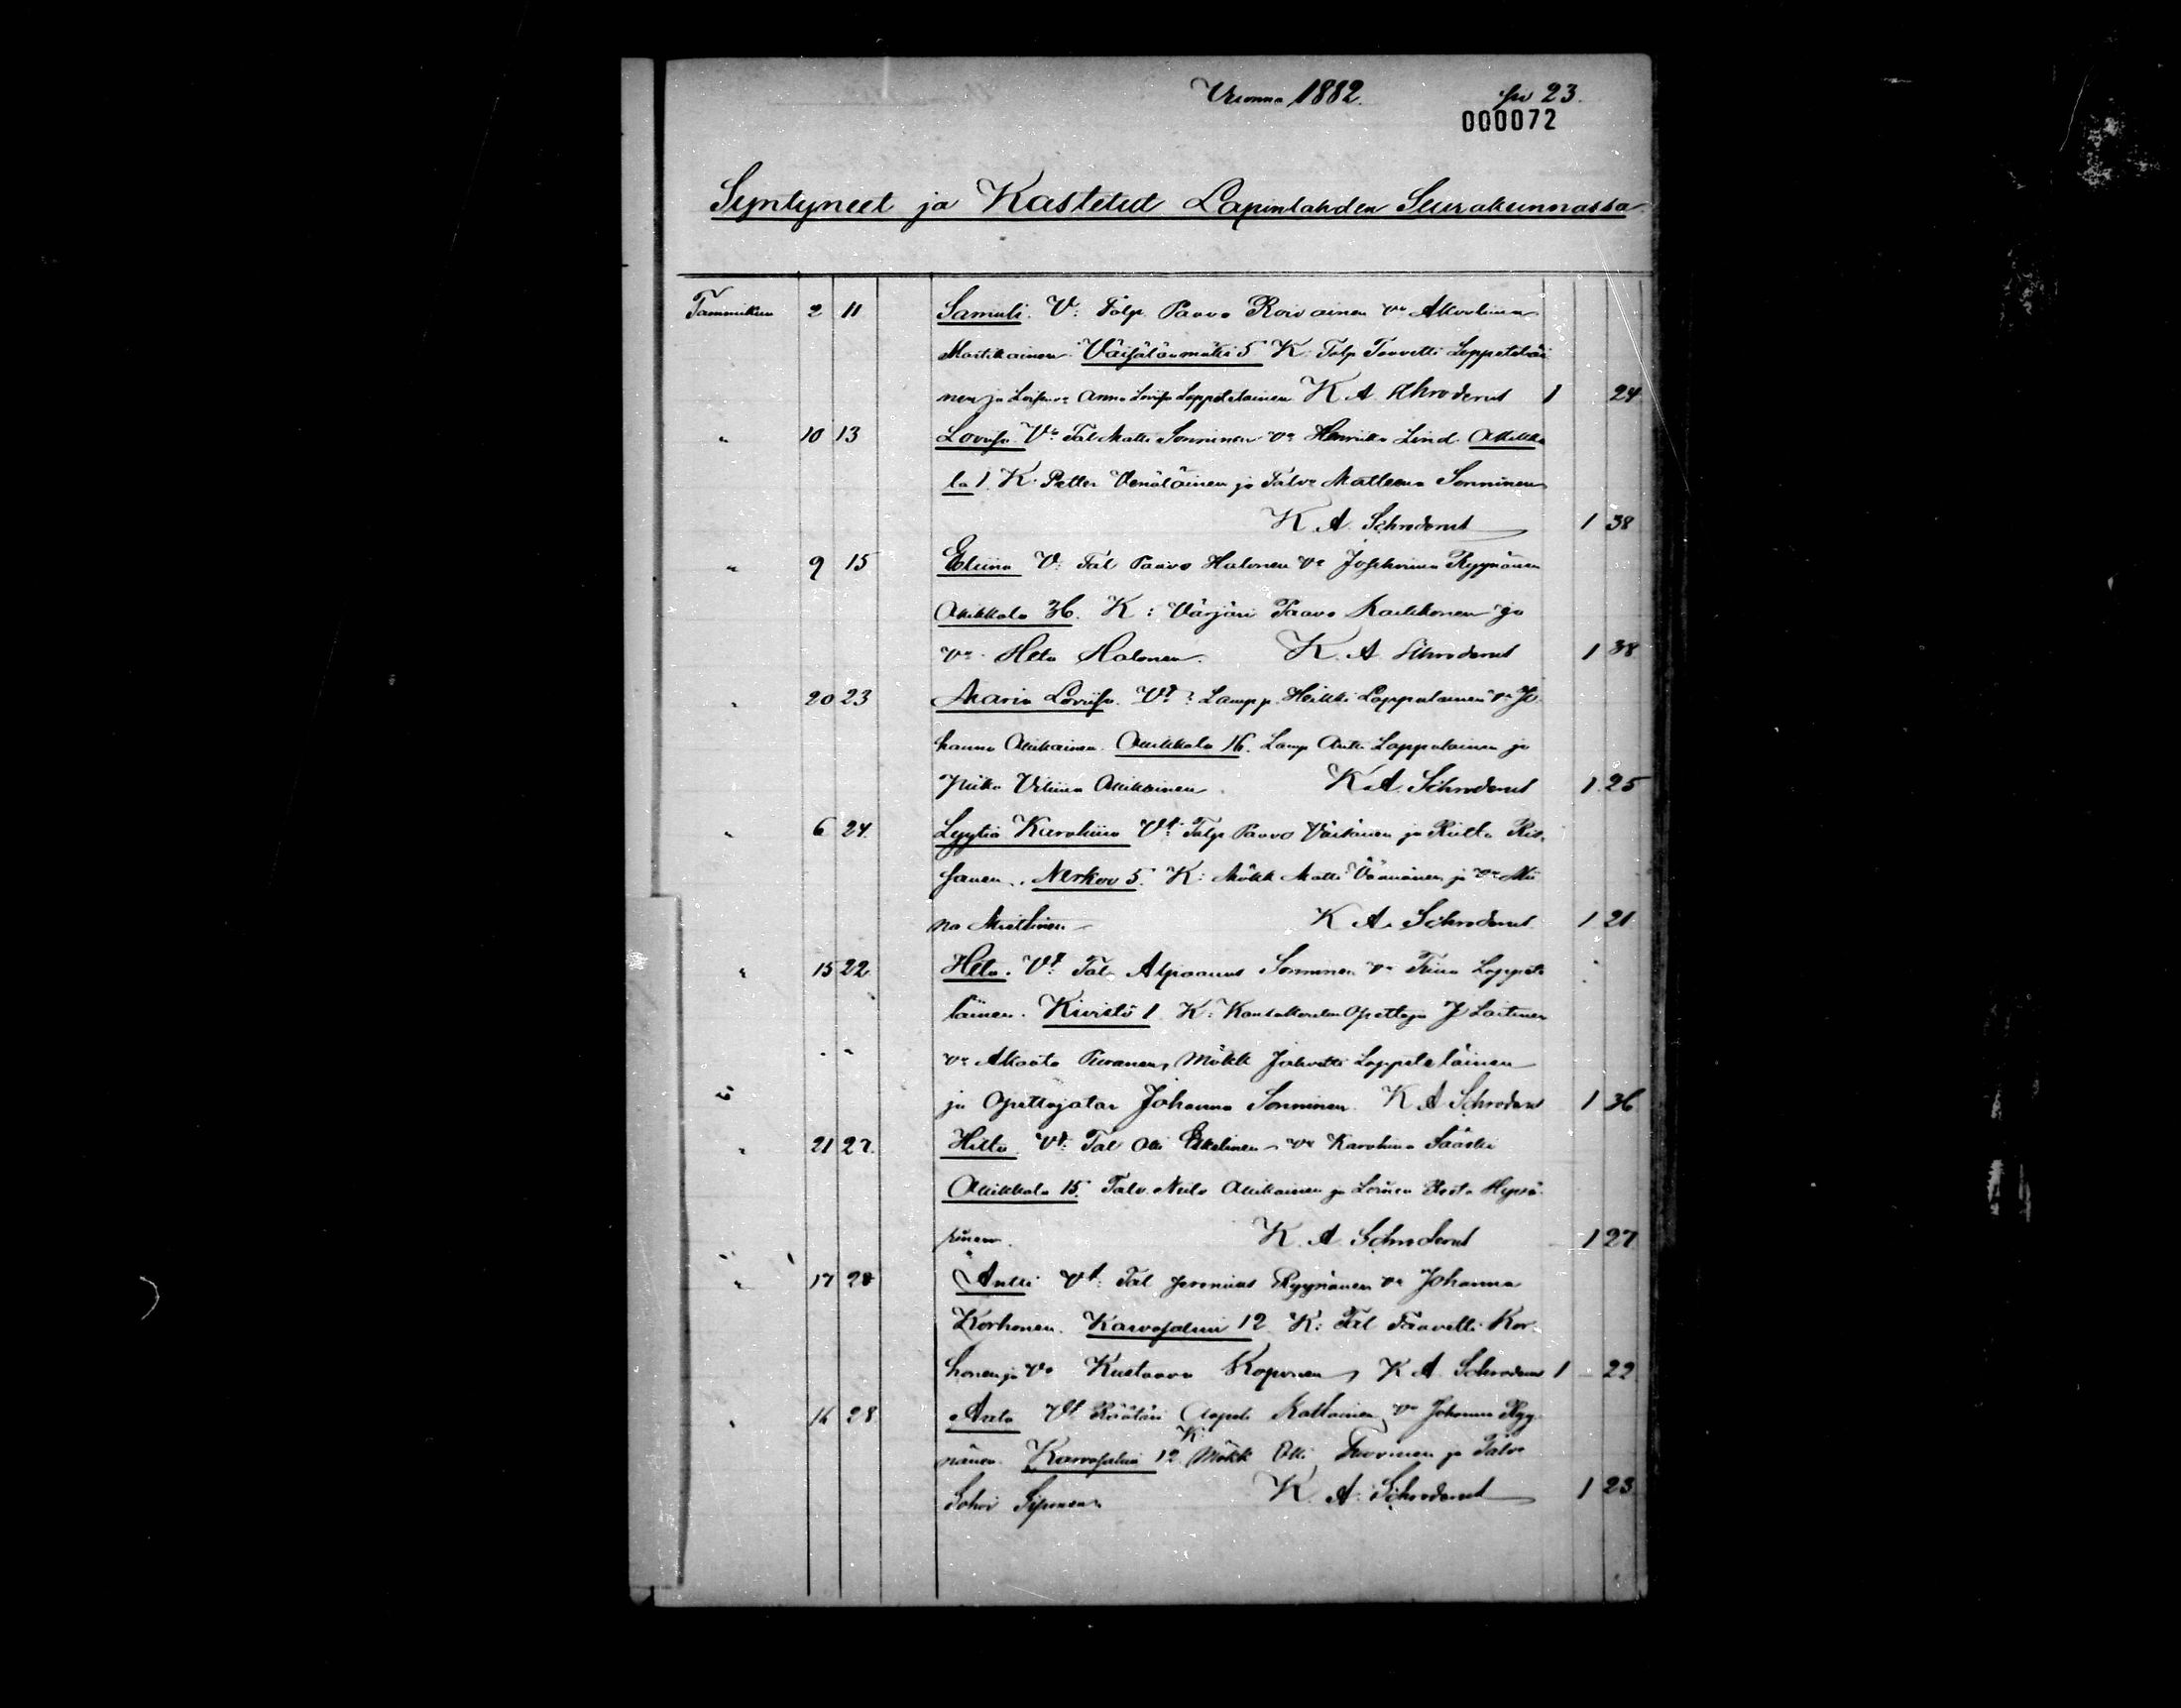 Vuonna 1882. siv 23.
000072
Syntyneet ja Kastetut Lapinlahden Seurakunnassa
Tammikuu 2 11 Samuli. V: Talp. Paavo Roivainen vo
Martikainen. Väisälänmäki 5 K: Talp Taavetti Leppeteläi
nen ja Anna Lovisa Leppeteläinen K A Schroderus 1 24
" 10 13 Lovisa Vt: Tal Matti Sonninen vo Henriika Lind. Ollikka
la 1. K. Petter Venäläinen ja Talvo Matleena Sonninen
K. A. Schroderus 1 38
" 9 15 Eliina V: Tal Paavo Halonen vo Josehvina Ryynänen
Ollikkala 36. K: Värjäri Paavo Karkkonen ja
vo Heta Halonen. K. A. Schroderus 1 38
" 20 23 Maria Loviisa. Vt: Lampp. Heikki Lappalainen vo Jo
hanna Ollikainen. Ollikkala 16. Lamp Antti Lappalainen ja
Piika Ollikainen K. A. Schroderus 1 25
" 6 24. Lyytia Karoliina Vt: Talp Paavo Väisänen ja Riitta Ris
sanen. Nerkoo 5. K: Mökk Matti Väänänen ja vo Mii
na Miettinen K A. Schroderus 1 21
" 15 22 Heta. Vt: Tal Sonninen vo Tiina Leppete
läinen. Kivistö 1 K: Kansakoulun Opettaja J Laitinen
vo Akaata Puranen, Mökk Jahvetti Leppeteläinen
ja Opettajatar Johanna Sonninen. K A Schroderus 1 36
" 21 27. Hilta. Vt: Tal Olli Eskelinen vo Karoliina Sääski
Ollikkala 15. Talv. Niilo Ollikainen ja Hyvä
rinen. K. A. Schroderus 1 27
" 17 28 Antti Vt: Tal Jeremias Ryynänen vo Johanna
Korhonen. Karvasalmi 12 K: Tal Taavetti Kor
honen ja vo Kustaava Koponen, K A. Schroderus 1 22
" 16 28 Aato Vt Räätäri Aapeli vo Johanna Ryy
nänen. Karvasalmi 12 K: Mökk Olli Tuovinen ja Talvo
Sohvi Siponen K. A. Schroderus 1 23